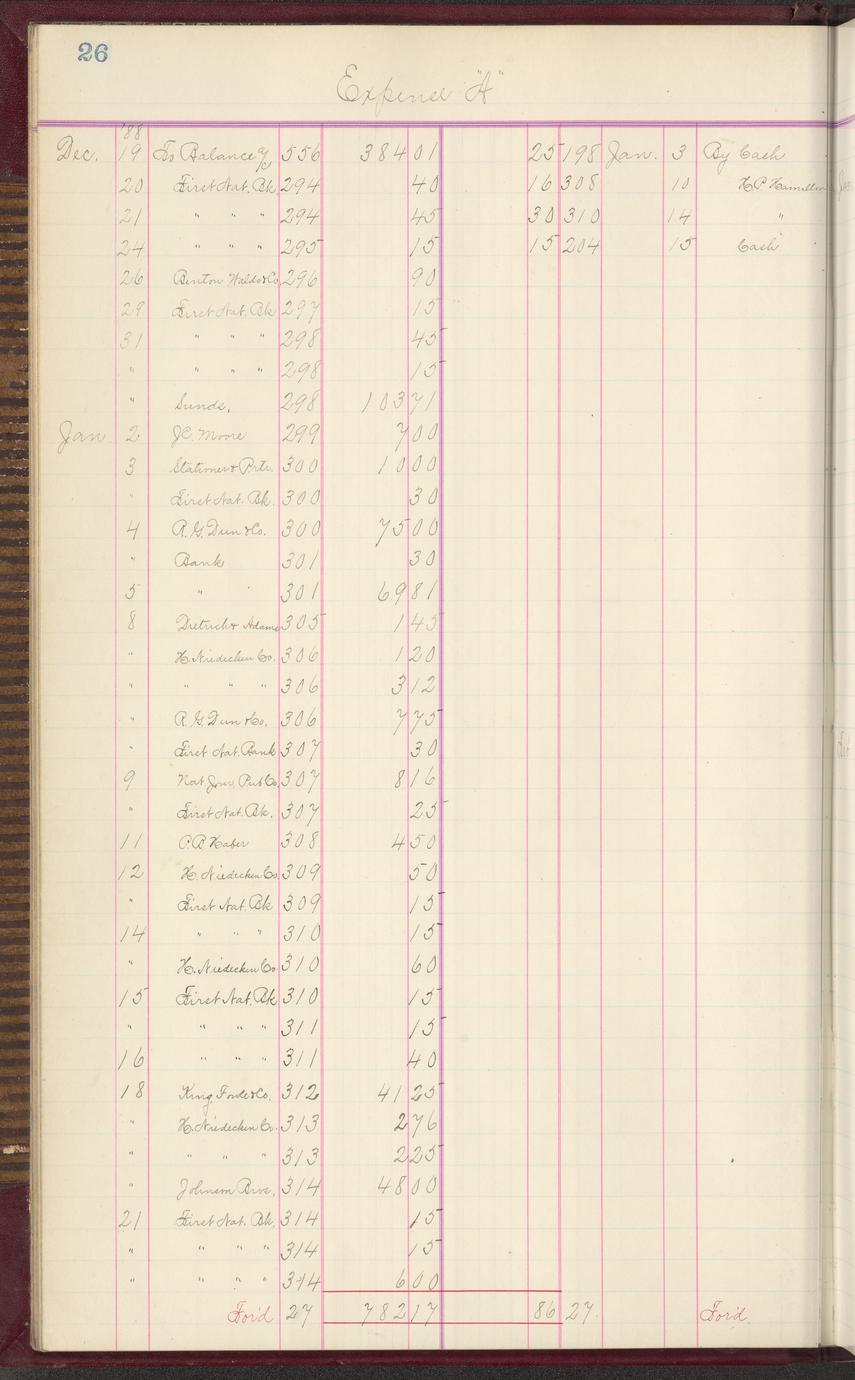 26
Expense "A"
'88
Dec. 19 To Balance % 556 384 01 25 198 Jan. 3 By Cash
20 First Nat. Bk. 294 40 16 308 10 H.P. Hamilton
21 " " " 294 45 30 310 14 "
24 " " " 295 15 15 204 15 Cash
26 Benton Waldo & Co 296 90
29 First Nat. Bk 297 15
31 " " " 298 45
" " " " 298 15
" Sunds, 298 103 71
Jan 2 J.C. Moore 299 7 00
3 Stationer & Prtr. 300 10 00
" First Nat. Bk. 300 30
4 R.G. Dun & Co. 300 75 00
" Bank 301 30
5 " " 301 69 81
8 Dietrich & Adams 305 1 45
" H. Niedecken Co. 306 1 20
" " " " 306 3 12
" R.G. Dun & Co. 306 7 75
" First Nat. Bank 307 30
9 Nat. Jour. Pub Co. 307 8 16
" First Nat. Bk. 307 25
11 308 4 50
12 H. Niedecken Co. 309 50
" First Nat. Bk 309 15
14 " " " 310 15
" H. Niedecken Co 310 60
15 First Nat. Bk 310 15
" " " " 311 15
16 " " " 311 40
18 King, & Co. 312 41 25
" H. Niedecken Co. 313 2 76
" " " " 313 2 25
" Johnson Bros. 314 48 00
21 First Nat. Bk. 314 15
" " " " 314 15
" " " " 314 6 00
For'd 27 782 17 86 27 For'd